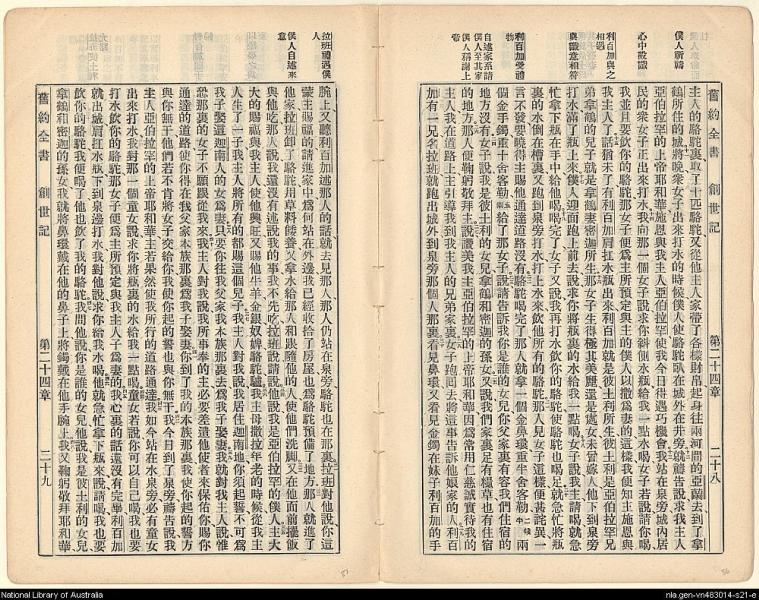 僕人所禱
心中設識
利百加與之相遇
與識意相符
利百加受禮物
自述家系請僕人至其家
僕人稱謝上帝
舊約全書 創世記 第二十四章 二十八
主人的駱駝裏取了十匹駱駝又從他主人家帶了各樣財帛起身往兩河間的亞蘭去到了拿
鶴所住的城將晚衆女子出來打水的時候僕人使駱駝臥在城外井旁就禱告說求我主人
亞伯拉罕的上帝耶和華施恩與我主人亞伯拉罕使我今日得遇巧機會我站在泉旁城內居
民的衆女子正出來打水我向那一個女子說求你斜側水瓶給我一點水喝女子若說請你喝
我並且要飲你的駱駝那女子便爲主所預定與主的僕人以撒爲妻的這樣我便知主施恩與
我主人了話猶未了有利百加肩扛水瓶出來利百加就是彼土利所生彼土利是亞伯拉罕兄
弟拿鶴的兒子就是拿鶴妻密迦所生那女子生得極其美麗還是處女未曾嫁人他下到泉旁
打水滿了瓶上來僕人迎面跑上前去說求你將瓶裏的水給我一點喝女子說我主請喝就急
忙拿下瓶在手中給他喝喝完了女子又說我再打水飲你的駱駝使駱駝也喝足就急忙將瓶
裏的水倒在槽裏又跑到泉旁打水打上水來飲他所有的駱駝那人見女子這樣便甚詫異一
言不發要曉得主賜他通達道路沒有駱駝喝完了那人就拿一個金鼻環重半舍客勒兩
個金手鐲重十舍客勒給了那女子說請告訴我你是誰的女兒你父家裏有容我們住宿的
地方沒有女子說我是彼土利的女兒拿鶴和密迦的孫女又說我們家裏足有糧草也有住宿
的地方那人便鞠躬敬拜主說讚美我主亞伯拉罕的上帝耶和華因爲常用仁慈誠實待我的
主人我在道路上主引導我到我主人的兄弟家裏女子跑回去將這事告訴他娘家的人利百
加有一兄名拉班就跑出城外到泉旁那個人那裏看見鼻環又看見金鐲在妹子利百加的手
拉班禮遇僕人
僕人自述來意
腕上又聽利百加述那人的話就去見那人那人仍站在泉旁駱駝也在那裏拉班對他說你這
蒙主賜福的請進家中爲何站在外邊我已經收拾了房屋也爲駱駝預備了地方那人就進了
他家拉班卸了駱駝用草料餧養又拿水給那人和跟隨他的人使他們洗脚又在他面前擺飯
與他吃那人說我還沒有述說我的事我不先吃拉班說請說他說我是亞伯拉罕的僕人主大
大的賜福與我主人使他興旺又賜他牛羊金銀奴婢駱駝驢我主母撒拉年老的時候從我主
人生了一子我主人將所有的都賜這個兒子我主人對我說我居住迦南地你須起誓不可爲
我子娶這迦南人的女爲妻只要你往我父家我本族那裏去爲我子娶妻我就對我主人說惟
恐那裏的女子不願跟從我來我主人對我說我所事奉的主必要差遣他使者來保佑你賜你
通達的道路使你得在我父家本族那裏爲我子娶妻你到了我的本族那裏我使你起的誓方
與你無干他們若不肯將女子交給你我使你起的誓也與你無干我今日到了泉旁禱告說我
主人亞伯拉罕的上帝耶和華主若果然使我所行的道路通達我如今站在水泉旁必有童女
出來打水我對那一個童女說求你將瓶裏的水給我一點喝童女若說你可以自己喝我也要
打水飲你的駱駝那女子便爲主所預定與我主人子爲妻的我心裏的話還沒有完畢利百加
就出城肩扛水瓶下到泉邊打水我對他說求你給我水喝他就急忙拿下瓶來說請喝我也要
飲你的駱駝我便喝了他也飲了我的駱駝我問他說你是誰的女兒他說我是彼土利的女兒
拿鶴和密迦的孫女我就將鼻環戴在他的鼻子上將鐲戴在他手腕上我又鞠躬敬拜耶和華
舊約全書 創世記 第二十四章 二十九
National Library of Australia
nla.gen-vn483014-s21-e